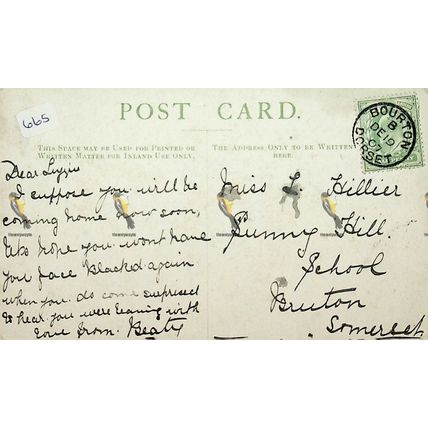 665
POST CARD.
THIS SPACE MAY BE USED FOR PRINTED OR
WRITTEN MATTER FOR INLAND USE ONLY.
THE ADDRESS ONLY TO BE WRITTEN
HERE.
BOURTON
B
DE 19
DORSET
Dear Lizzie
I suppose you will be
coming home now soon,
Lets hope you wont have
you face blacked again
when you do come surprised
to hear you were leaving with
love from Beaty
Miss L. Hillier
Sunny Hill.
School
Bruton
Somerset